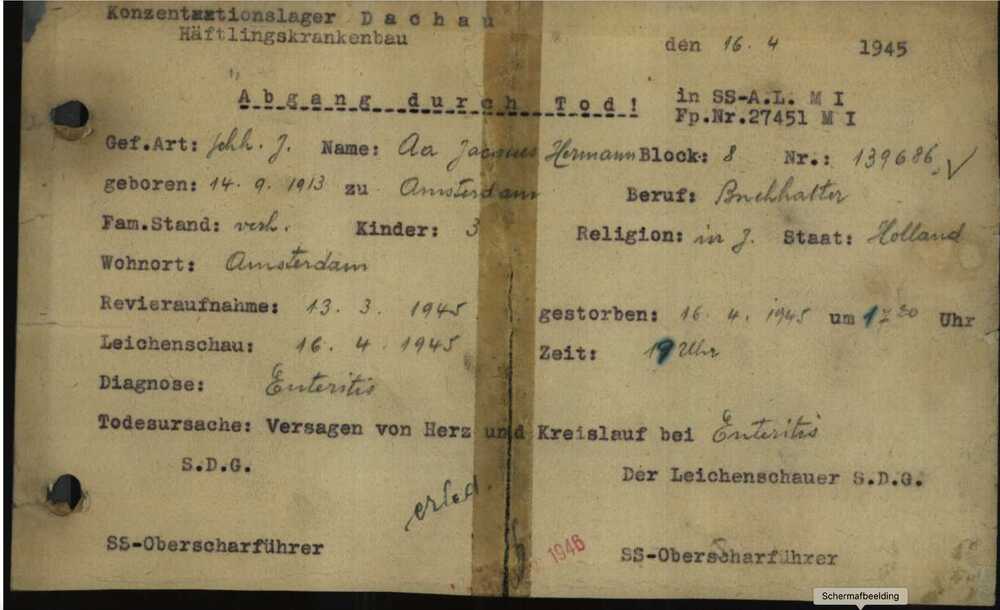 Konzentrationslager Dachau
Häftlingskrankenbau
den 16. 4 1945
Abgang durch Tod!
in SS-A.L. M I
Fp.Nr.27451 M I
Gef.Art: schh. J. Name: Aa Jacques Hermann Block: 8 Nr.: 139686
geboren: 14. 9. 1913 zu Amsterdam Beruf: Buchhalter
Fam.Stand: verh. Kinder: 3 Religion: J. Staat: Holland
Wohnort: Amsterdam
Revieraufnahme: 13. 3. 1945 gestorben: 16. 4. 1945 um 17 20 Uhr
Leichenschau: 16. 4. 1945 Zeit: 19 Uhr
Diagnose: Enteritis
Todesursache: Versagen von Herz und Kreislauf bei Enteritis
S.D.G. Der Leichenschauer S.D.G.
erled.
1946
SS-Oberscharführer SS-Oberscharführer
Schermafbeelding